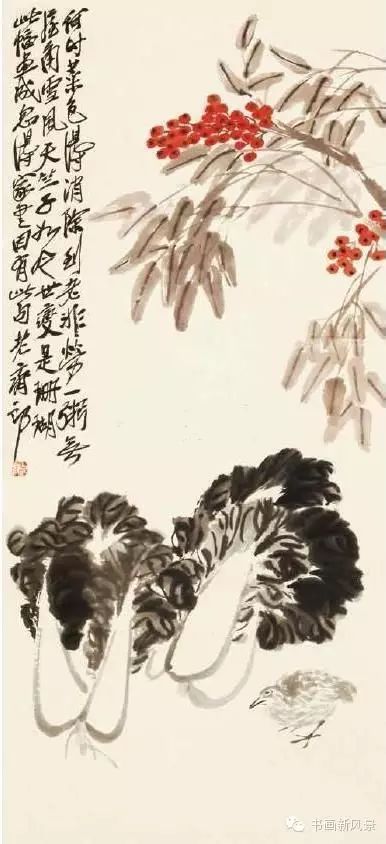 何时菜色得消除到老非勞一粥無
角雪風天竺子世變是珊瑚
此幅畫成忽得家書因有此句老齊郎
书画新风景